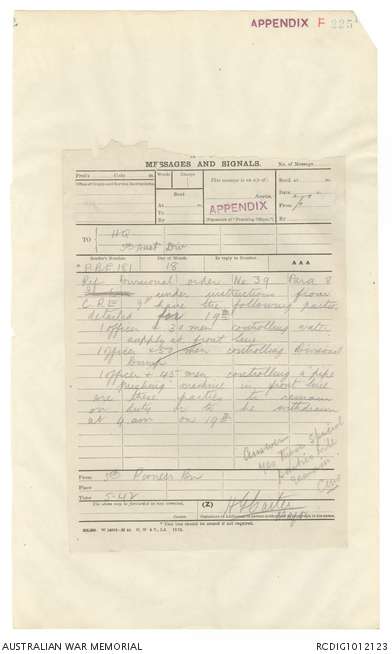 APPENDIX F 225
MESSAGES AND SIGNALS.
No. of Message
Prefix Code m.
Words Charge
This message is on a/c of:
Recd. at m.
Office of Origin and Service Instructions.
Sent
Date
At m.
Service.
From
To
APPENDIX
By
(Signature of "Franking Officer.")
By
TO
HQ
5th Aust Div
Sender's Number.
Day of Month
In reply to Number.
AAA
* P.B.E 181
18
Ref Divisional order No 39 Para 8
under instructions from
C R E I have the following parties
detailed for 19th
1 officer + 30 men controlling water
supply at front line
1 Officer + 50 men controlling Divisional
Dump
1 Officer + 45 men controlling a pipe
pushing machine in front line
are these parties to remain
on duty or to be withdrawn
at 9 am on 19th
Answer
Yes These Special
parties will
remain
From 5th Pioneer Bn
Place
Time 5.42
The above may be forwarded as now corrected.
(Z)
H G Carter
Major
Censor.
* This line should be erased if not required.
AUSTRALIAN WAR MEMORIAL
RCDIG1012123